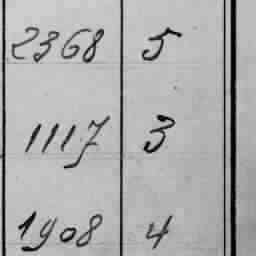 2368 5
1117 3
1908 4